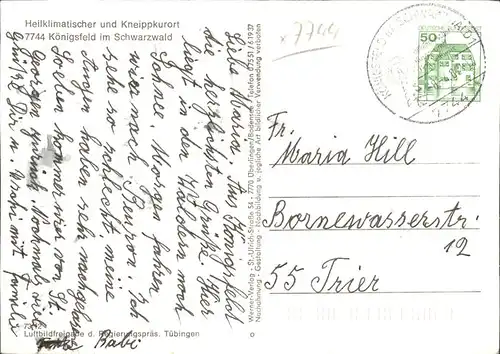 Heilklimatischer und Kneippkurort
7744 Königsfeld im Schwarzwald
x 7744
50
Liebe Maria. Aus Königsfeld
die herzlichsten Grüße. Hier
liegt in den Wäldern noch
Schnee. Morgen fahren
wir nach Beuron. Ich
sehe so schlecht meine
Augen haben sehr nachgelassen
Soeben kommen wir von St.
Georgen zurück. Nochmals viele
Grüße Dir u. Uschi mit Familie
Babi
Werner-Verlag - St.-Ulrich-Straße 54 - 7770 Überlingen/Bodensee - Telefon 07551/61937
Nachnahmung - Gestaltung - Nachbildung u. jegliche Art bildlicher Verwendung verboten
Fr.
Maria Hill
Bornewasserstr.
12
55 Trier
Luftbildfreigabe d. Regierungspräs. Tübingen